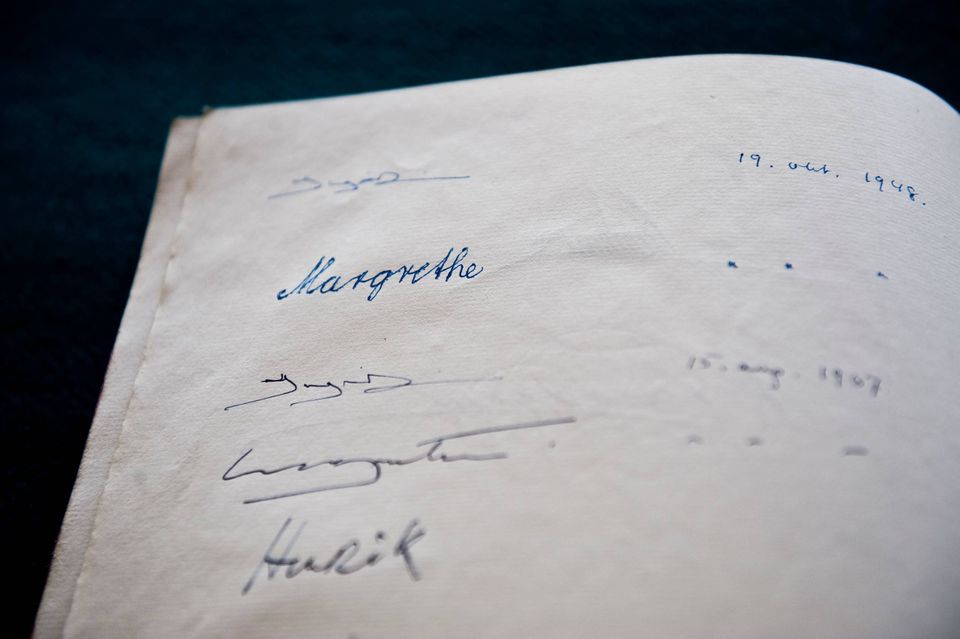 Ingrid 19. okt. 1948.
Margrethe " " "
Ingrid 15. aug. 1967
Margrethe " " "
Henrik